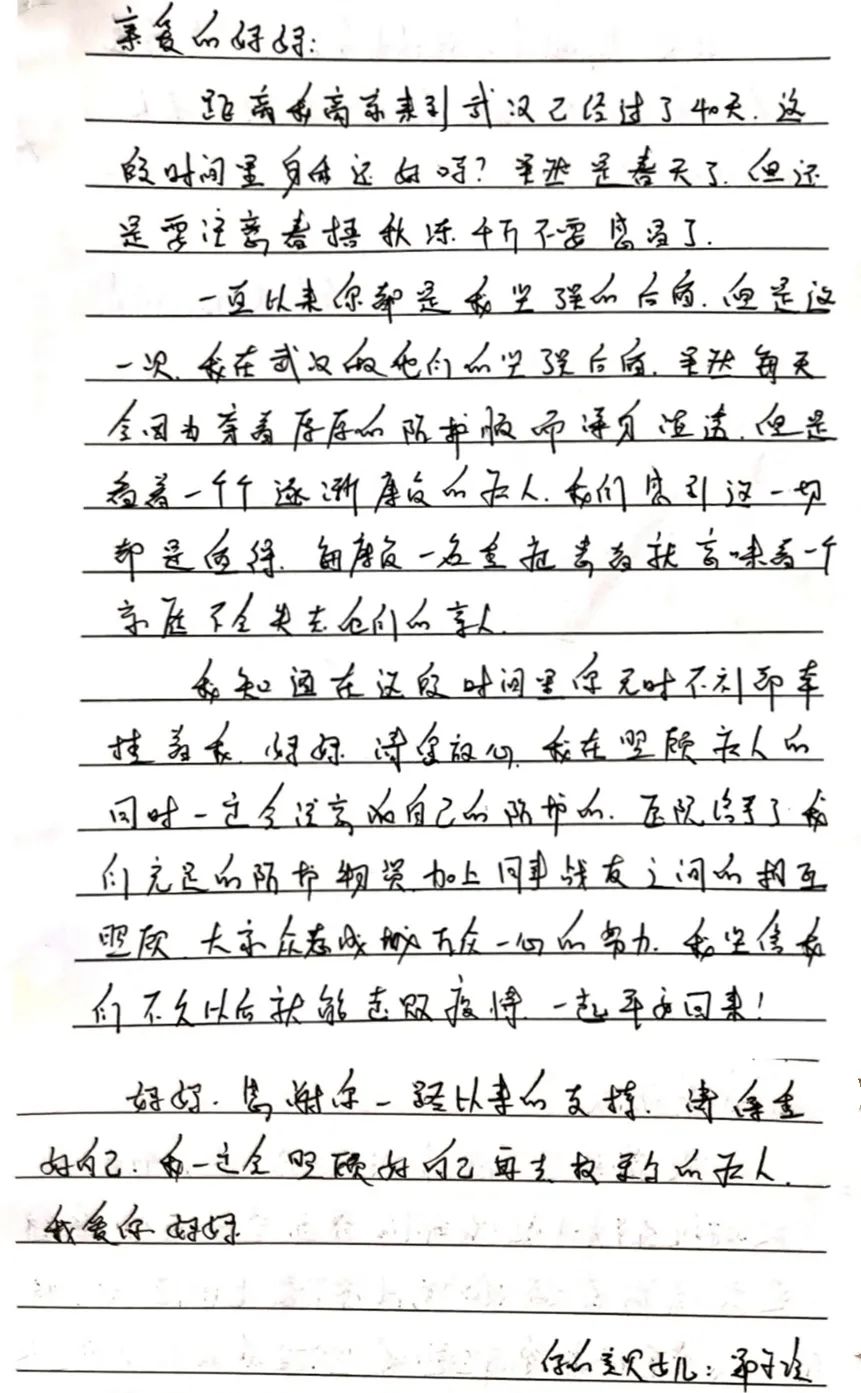 亲爱的妈妈:
距离我离京来到武汉已经过了40天.这
段时间里身体还好吗?虽然是春天了.但还
是要注意春捂秋冻千万不要感冒了.
一直以来你都是我坚强的后盾.但是这
一次.我在武汉做他们的坚强后盾.虽然每天
会因为穿着厚厚的防护服而浑身湿透.但是
看着一个个逐渐康复的病人.我们感到这一切
都是值得.每康复一名重症患者就意味着一个
家庭不会失去他们的亲人.
我知道在这段时间里你无时不刻都牵
挂着我.妈妈请您放心.我在照顾病人的
同时一定会注意好自己的防护的.医院给予了我
们充足的防护物资.加上同事战友之间的相互
照顾.大家众志成城万众一心的努力.我坚信我
们不久以后就能击败疫情.一起平安回来!
妈妈.感谢你一路以来的支持.请保重
好自己.我一定会照顾好自己再去救更多的病人.
我爱你妈妈
你的女儿: